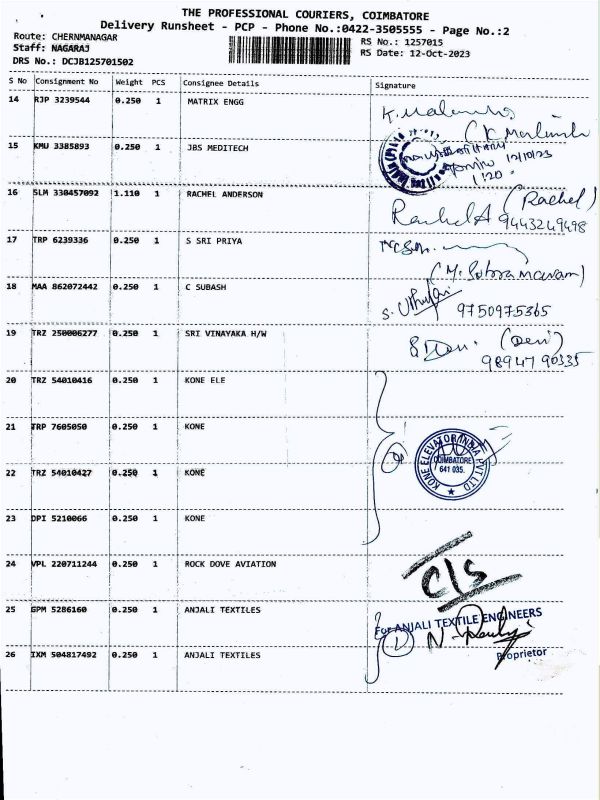 THE PROFESSIONAL COURIERS, COIMBATORE
Delivery Runsheet - PCP - Phone No.:0422-3505555 - Page No.:2
Route: CHERNMANAGAR
Staff: NAGARAJ
DRS No.: DCJB125701502
RS No.: 1257015
RS Date: 12-Oct-2023
S No Consignment No Weight PCS Consignee Details Signature
14 RJP 3239544 0.250 1 MATRIX ENGG
15 KMU 3385893 0.250 1 JBS MEDITECH
12/10/23
16 SLM 330457092 1.110 1 RACHEL ANDERSON
(Rachel)
9443249498
17 TRP 6239336 0.250 1 S SRI PRIYA
18 MAA 862072442 0.250 1 C SUBASH
9750975365
19 TRZ 250006277 0.250 1 SRI VINAYAKA H/W
(Devi)
9894790335
20 TRZ 54010416 0.250 1 KONE ELE
21 TRP 7605050 0.250 1 KONE
KONE ELEVATOR INDIA PVT LTD
COIMBATORE
641 035.
22 TRZ 54010427 0.250 1 KONE
23 DPI 5210066 0.250 1 KONE
24 VPL 220711244 0.250 1 ROCK DOVE AVIATION
C/S
25 GPM 5286160 0.250 1 ANJALI TEXTILES
For ANJALI TEXTILE ENGINEERS
26 IXM 504817492 0.250 1 ANJALI TEXTILES
Proprietor